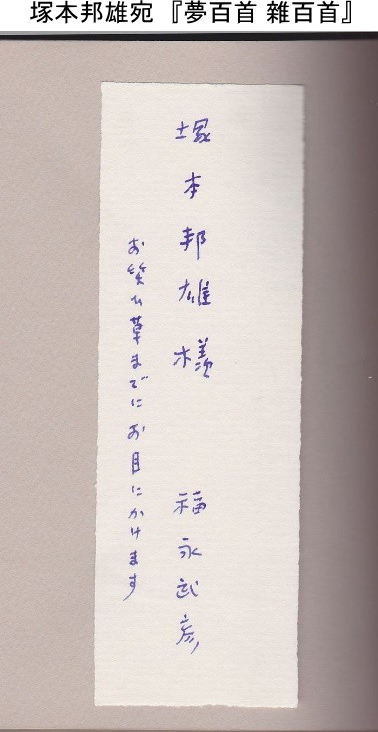 塚本邦雄宛 『夢百首 雜百首』
塚本邦雄様 福永武彦
お笑ひ草までにお目にかけます